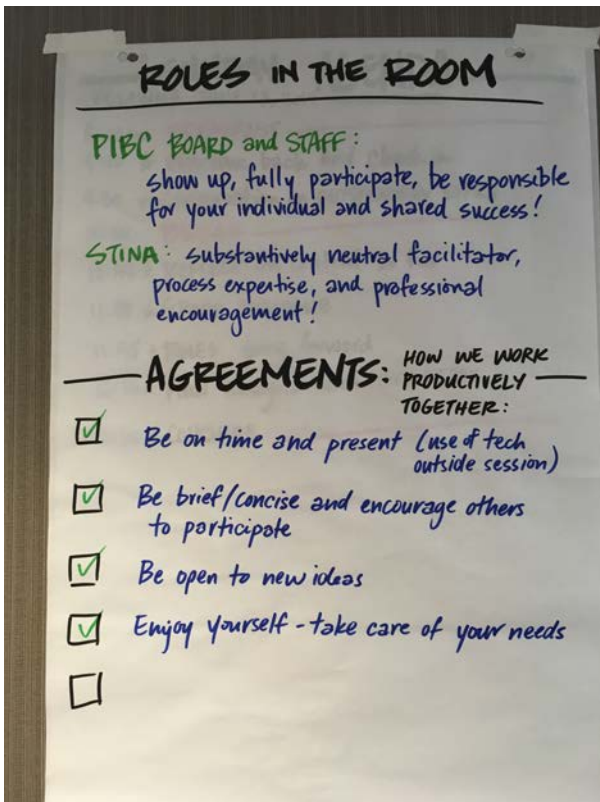 ROLES IN THE ROOM
PIBC BOARD and STAFF:
show up, fully participate, be responsible
for your individual and shared success!
STINA: substantively neutral facilitator,
process expertise, and professional
encouragement!
AGREEMENTS: HOW WE WORK
PRODUCTIVELY
TOGETHER:
Be on time and present (use of tech
outside session)
Be brief/concise and encourage others
to participate
Be open to new ideas
Enjoy yourself - take care of your needs